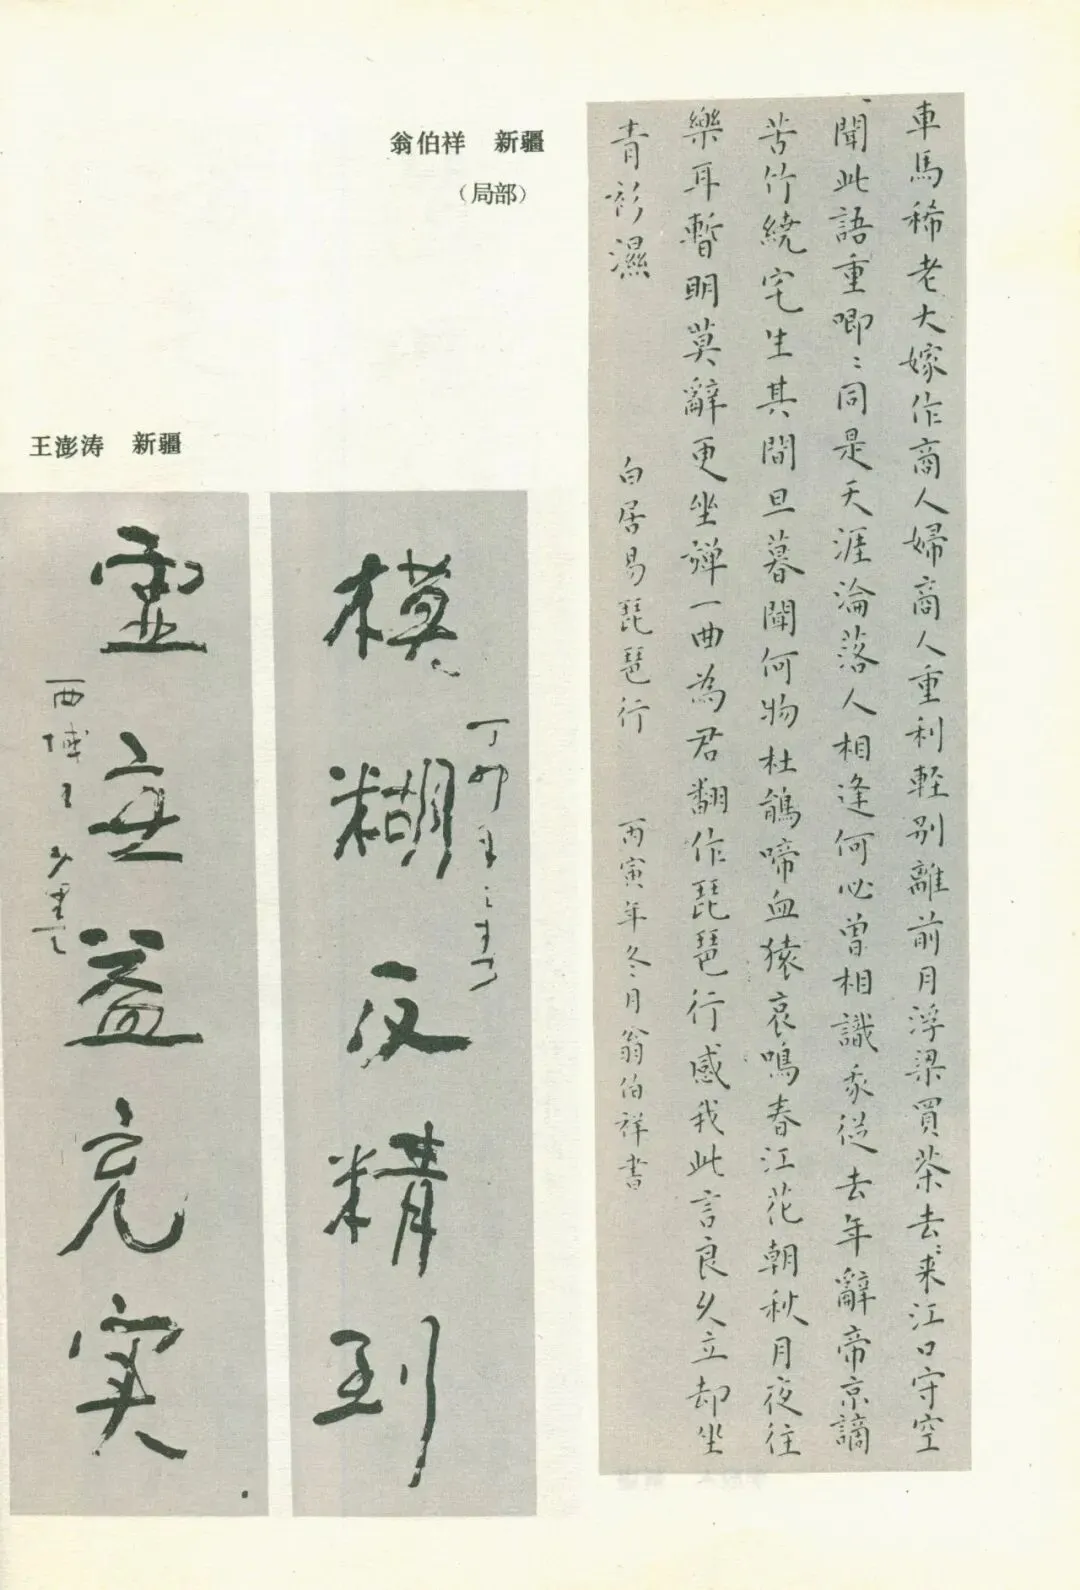 翁伯祥 新疆
（局部）
車馬稀老大嫁作商人婦商人重利輕别離前月浮梁買茶去〻来江口守空
聞此語重唧〻同是天涯淪落人相逢何必曾相識我從去年辭帝京謫
苦竹繞宅生其間旦暮聞何物杜鵑啼血猿哀鳴春江花朝秋月夜往
樂耳暫明莫辭更坐弹一曲為君翻作琵琶行感我此言良久立却坐
青衫濕 白居易琵琶行 丙寅年冬月翁伯祥書
王澎涛 新疆
模糊反精到
丁卯年之春
霊虚益充实